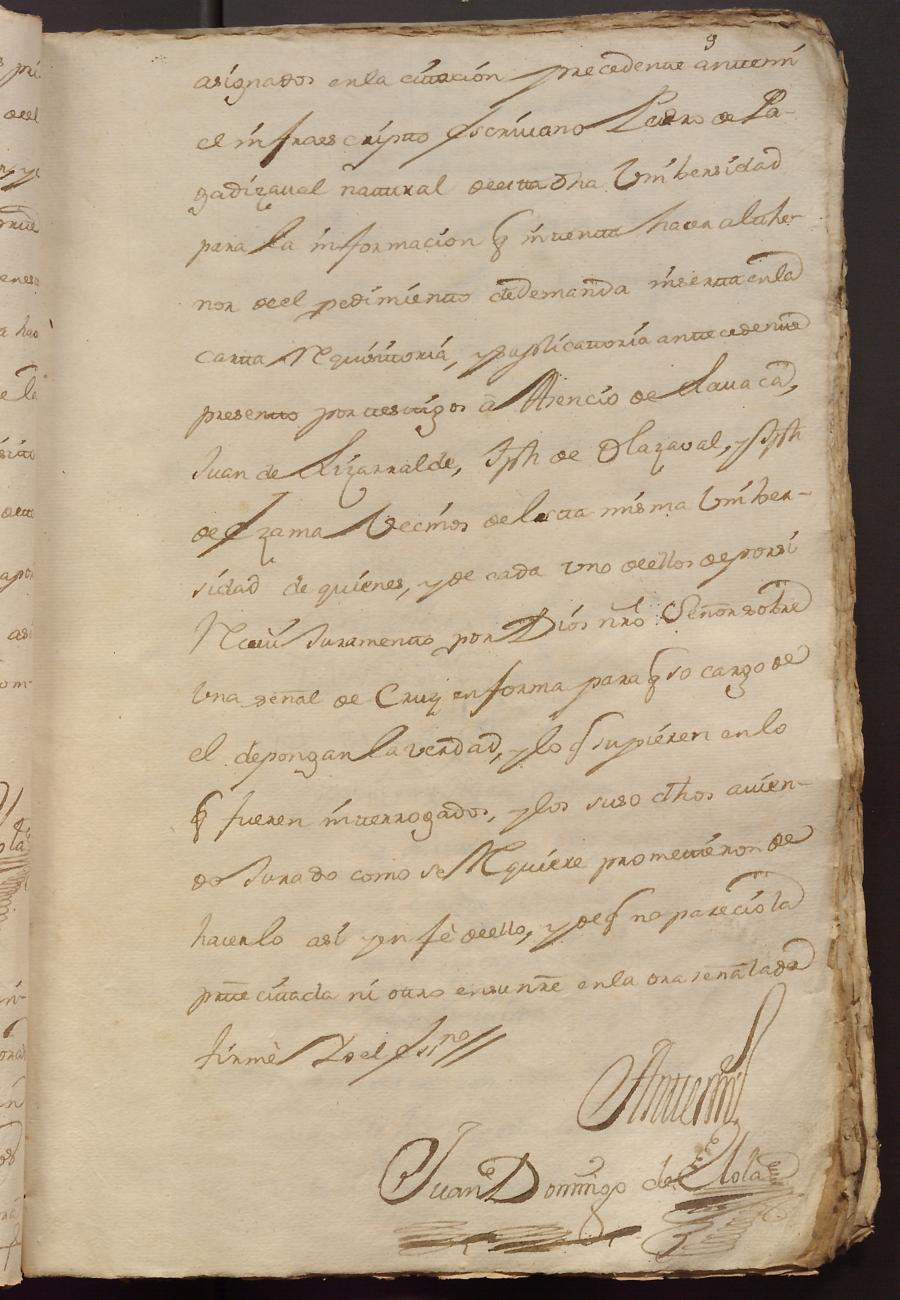 9
asignados en la citación precedente ante mi
el infraescripto Escrivano Pedro de La-
gadizaval natural de esta dha Vnibersidad
para la informacion q intenta hacer al the-
nor de el pedimiento de demanda inserta en la
carta Requisitoria, y suplicattoria antecedente
presento por testigos à Asencio de
Juan de Lizarralde, Jph de Olazaval, y Jph
de Ezama Vecinos de la esta misma Vniber-
sidad de quienes, y de cada uno de ellos de por si
Reciui Juramento por Dios nro Señor sobre
Vna señal de Cruz en forma para q so cargo de
el depongan la verdad, y lo q supieren en lo
q fueren interrogados, y los suso dhos avien-
do Jurado como se Requiere prometieron de
hacerlo asi y en fè de ello, y de q no pareció la
prte citada ni otro en su nre en la ora señalada
firmè Yo el Esno
Ante mi
Juan Domingo de Elola